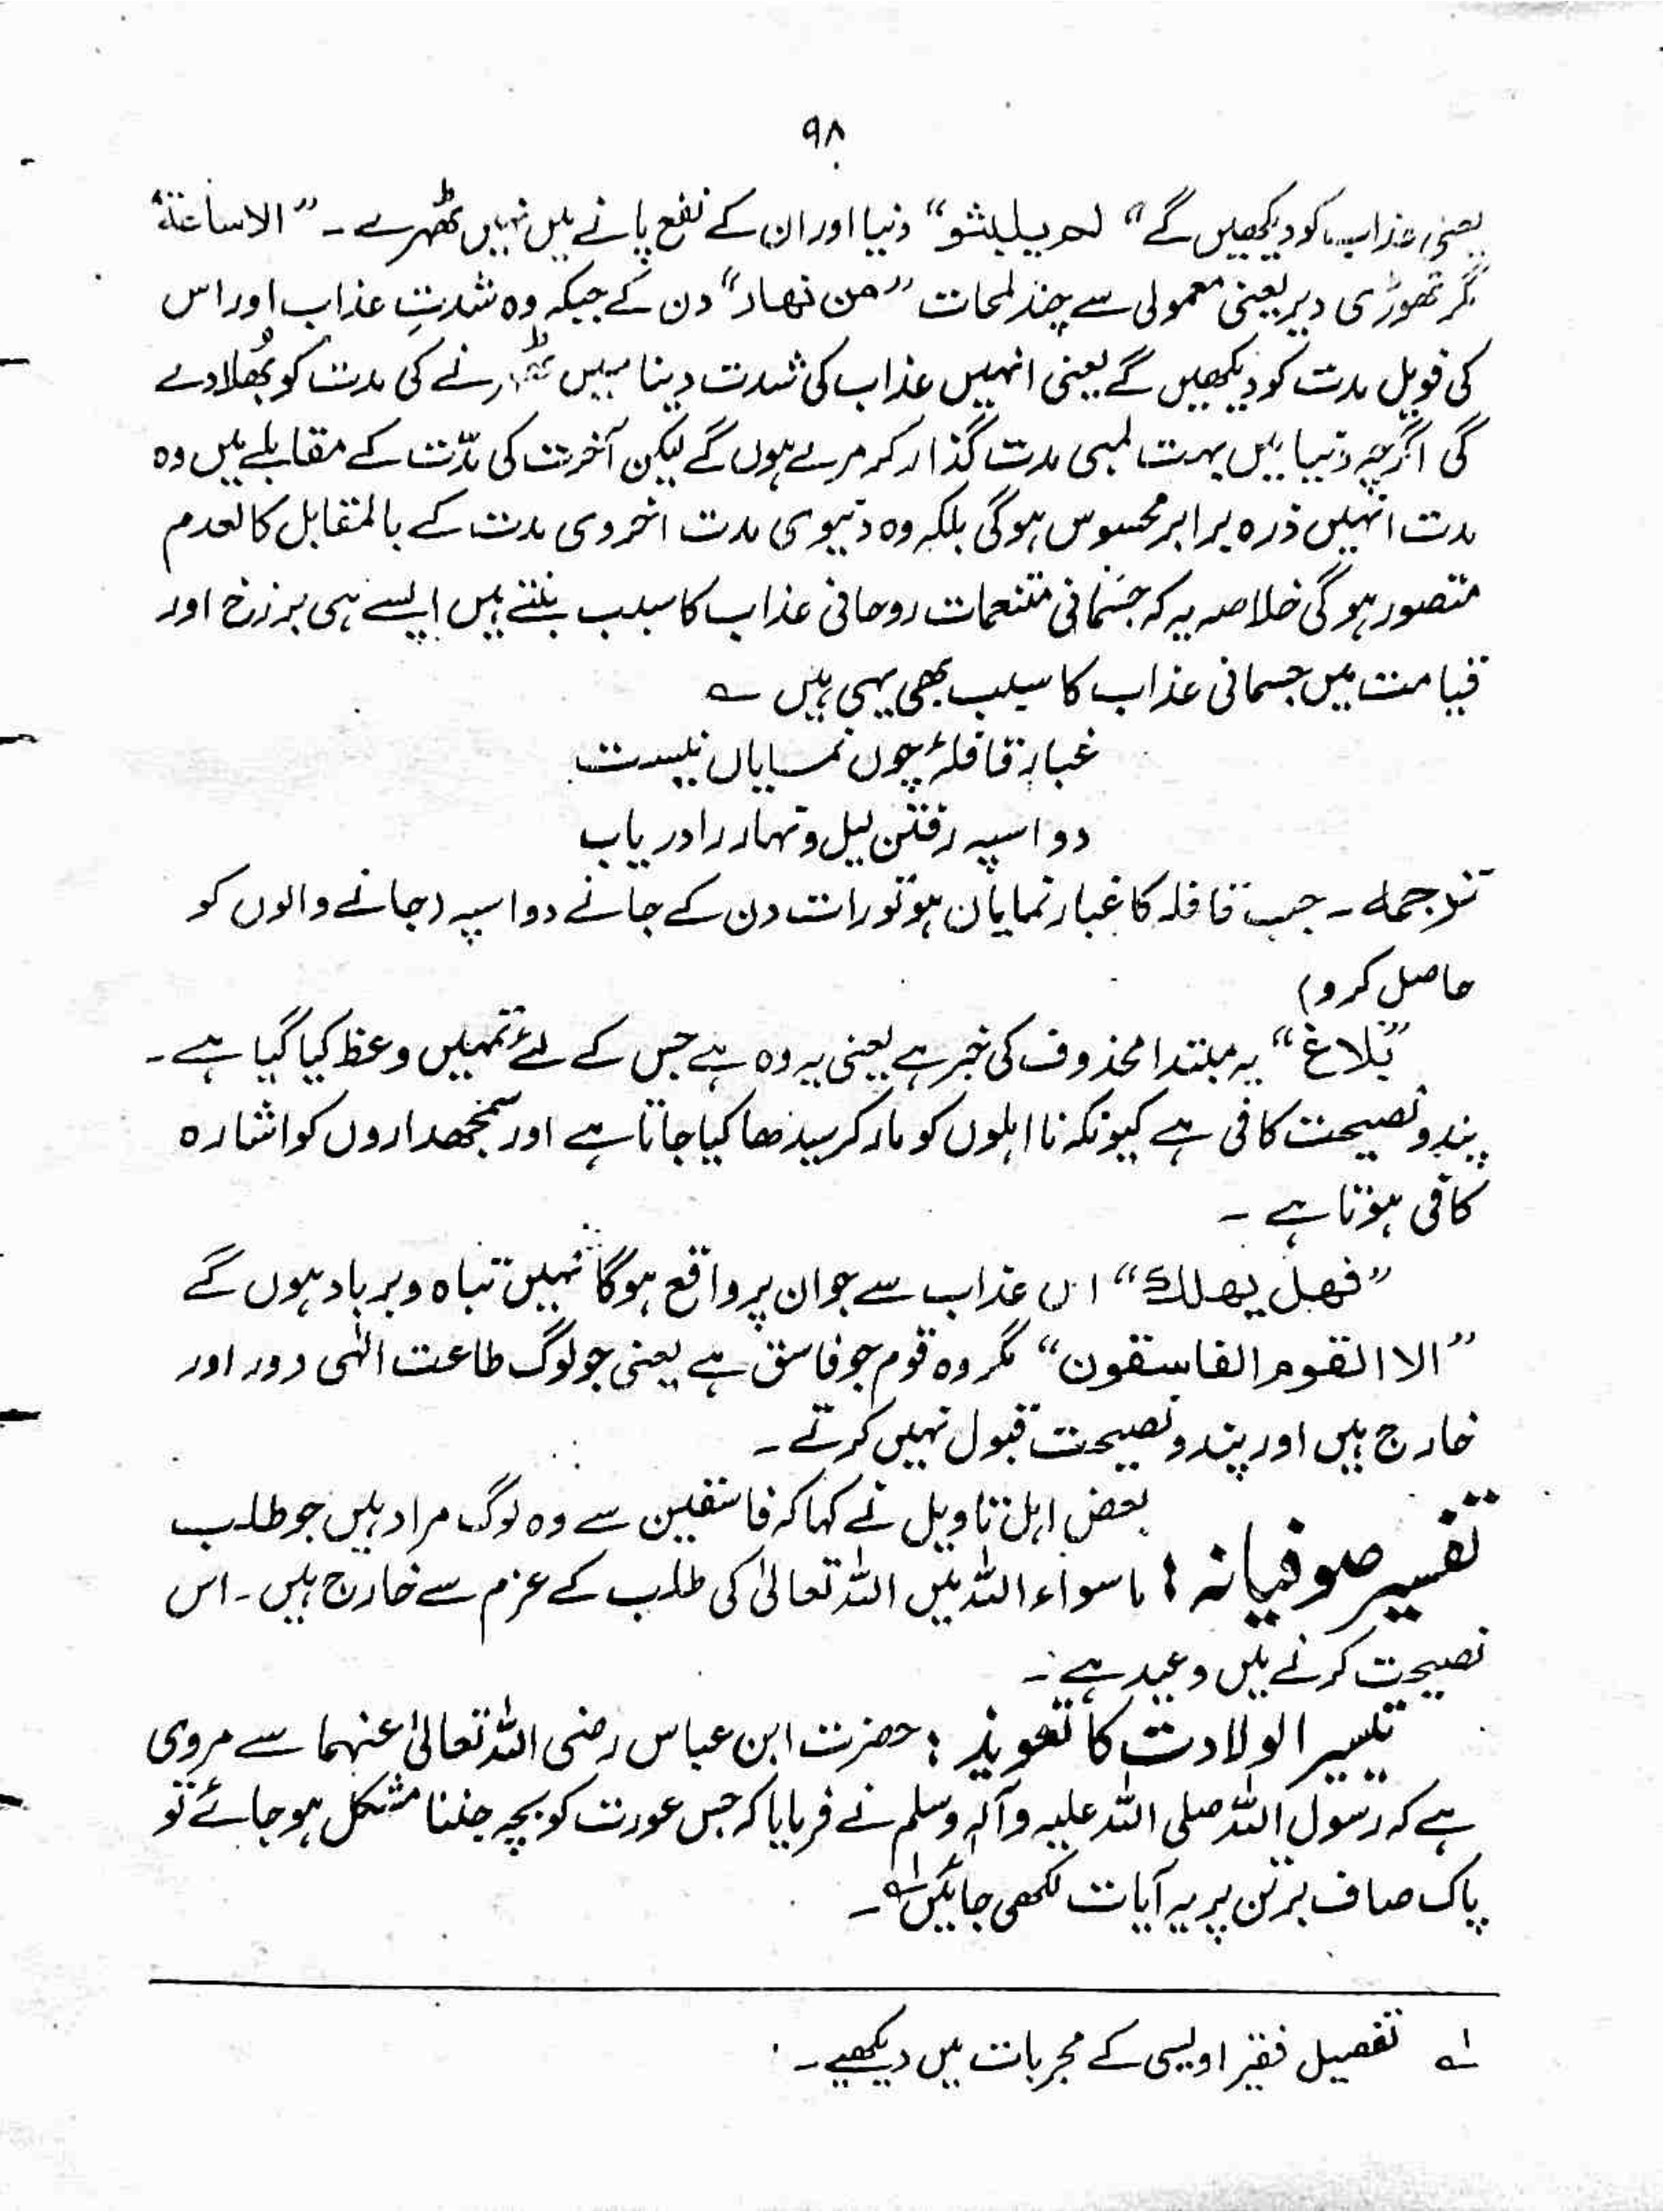 ۹۸
یعنی عذاب کو دیکھیں گے "لم یلبثو" دنیا اور ان کے نفع پانے میں نہیں ٹھہرے ۔ "الا ساعۃ"
مگر تھوڑی دیر یعنی معمولی سے چند لمحات "من نھار" دن کے جبکہ وہ شدتِ عذاب اور اس
کی طویل مدت کو دیکھیں گے یعنی انہیں عذاب کی شدت دینا میں ٹھہرنے کی مدت کو بھُلا دے
گی اگرچہ دنیا میں بہت لمبی مدت گذار کر مرے ہوں گے لیکن آخرت کی مدّت کے مقابلے میں وہ
مدت انہیں ذرہ برابر محسوس ہوگی بلکہ وہ دنیوی مدت اخروی مدت کے بالمقابل کالعدم
متصور ہو گی خلاصہ یہ کہ جسمانی متنعمات روحانی عذاب کا سبب بنتے ہیں ایسے ہی برزخ اور
قیامت میں جسمانی عذاب کا سبب بھی یہی ہیں ؎
غبار قافلۂ چوں نمایاں نیست
دو اسپہ رفتن لیل و نہار را دریاب
ترجمہ ۔ جب قافلہ کا غبار نمایان ہو تو رات دن کے جانے دو اسپہ (جانے والوں کو
حاصل کرو)
"بَلاغ" یہ مبتدا محذوف کی خبر ہے یعنی یہ وہ ہے جس کے لئے تمہیں وعظ کیا گیا ہے ۔
پند و نصیحت کافی ہے کیونکہ نا اہلوں کو مار کر سیدھا کیا جاتا ہے اور سمجھداروں کو اشارہ
کافی ہوتا ہے ۔
"فھل یھلک" اس عذاب سے جو ان پر واقع ہوگا نہیں تباہ و برباد ہوں گے
"الا القوم الفاسقون" مگر وہ قوم جو فاسق ہے یعنی جو لوگ طاعت الٰہی دور اور
خارج ہیں اور پند و نصیحت قبول نہیں کرتے ۔
تفسیر صوفیانہ : بعض اہل تاویل نے کہا کہ فاسقین سے وہ لوگ مراد ہیں جو طلب
ماسواء اللہ میں اللہ تعالیٰ کی طلب کے عزم سے خارج ہیں ۔ اس
نصیحت کرنے میں وعید ہے ۔
تیسیر الولادت کا تعویذ : حضرت ابن عباس رضی اللہ تعالیٰ عنہما سے مروی
ہے کہ رسول اللہ صلی اللہ علیہ وآلہٖ وسلم نے فرمایا کہ جس عورت کو بچہ جننا مشکل ہو جائے تو
پاک صاف برتن پر یہ آیات لکھی جائیں ۱؎ ۔
۱؎ تفصیل فقیر اویسی کے مجربات میں دیکھیے ۔